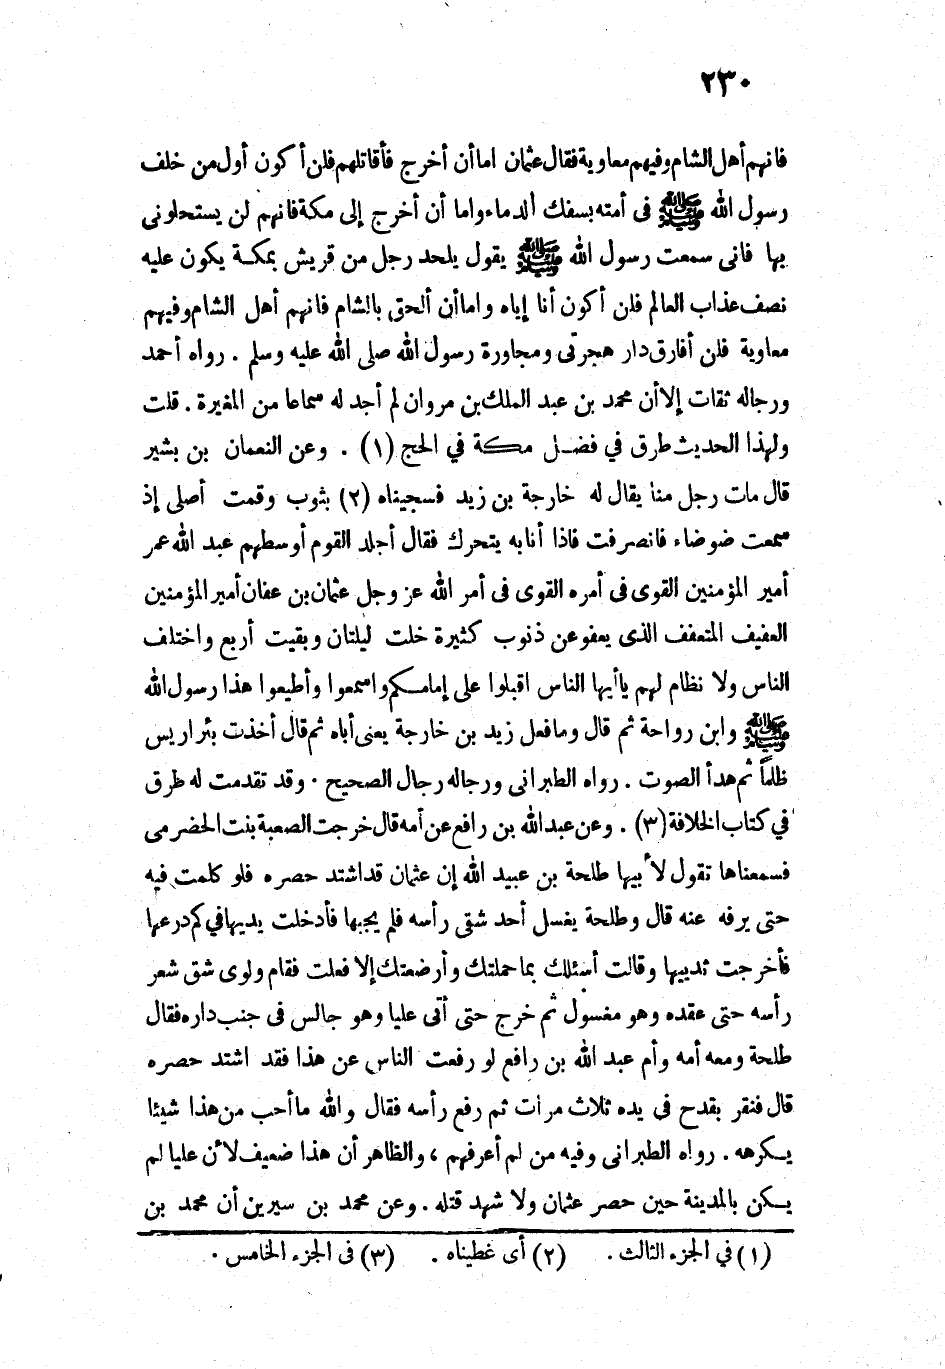 ٢٣٠
فانهم أهل الشام وفيهم معاوية فقال عثمان اما أن أخرج فأقاتلهم فلن أكون أول من خلف
رسول الله ﷺ فى أمته بسفك الدماء واما أن أخرج إلى مكة فانهم لن يستحلونى
بها فانى سمعت رسول الله ﷺ يقول يلحد رجل من قريش بمكة يكون عليه
نصف عذاب العالم فلن أكون أنا إياه واما أن ألحق بالشام فانهم أهل الشام وفيهم
معاوية فلن أفارق دار هجرتى ومجاورة رسول الله صلى الله عليه وسلم . رواه أحمد
ورجاله ثقات إلا أن محمد بن عبد الملك بن مروان لم أجد له سماعا من المغيرة . قلت
ولهذا الحديث طرق في فضل مكة في الحج (١) . وعن النعمان بن بشير
قال مات رجل منا يقال له خارجة بن زيد فسجيناه (٢) بثوب وقمت أصلى إذ
سمعت ضوضاء فانصرفت فاذا أنا به يتحرك فقال أجلد القوم أوسطهم عبد الله عمر
أمير المؤمنين القوى فى أمره القوى فى أمر الله عز وجل عثمان بن عفان أمير المؤمنين
العفيف المتعفف الذى يعفو عن ذنوب كثيرة خلت ليلتان وبقيت أربع واختلف
الناس ولا نظام لهم يا أيها الناس اقبلوا على إمامكم واسمعوا وأطيعوا هذا رسول الله
ﷺ وابن رواحة ثم قال وما فعل زيد بن خارجة يعنى أباه ثم قال أخذت بئر اريس
ظلماً ثم هدأ الصوت . رواه الطبرانى ورجاله رجال الصحيح . وقد تقدمت له طرق
في كتاب الخلافة (٣) . وعن عبد الله بن رافع عن أمه قال خرجت الصعبة بنت الحضرمى
فسمعناها تقول لأبيها طلحة بن عبيد الله إن عثمان قد اشتد حصره فلو كلمت فيه
حتى يرفه عنه قال وطلحة يغسل أحد شقى رأسه فلم يجبها فأدخلت يديها في كم درعها
فأخرجت ثدييها وقالت أسئلك بما حملتك وأرضعتك إلا فعلت فقام ولوى شق شعر
رأسه حتى عقده وهو مغسول ثم خرج حتى أتى عليا وهو جالس فى جنب داره فقال
طلحة ومعه أمه وأم عبد الله بن رافع لو رفعت الناس عن هذا فقد اشتد حصره
قال فنقر بقدح فى يده ثلاث مرات ثم رفع رأسه فقال والله ما أحب من هذا شيئا
يكرهه . رواه الطبرانى وفيه من لم أعرفهم ، والظاهر أن هذا ضعيف لأن عليا لم
يكن بالمدينة حين حصر عثمان ولا شهد قتله . وعن محمد بن سيرين أن محمد بن
(١) في الجزء الثالث . (٢) أى غطيناه . (٣) فى الجزء الخامس .